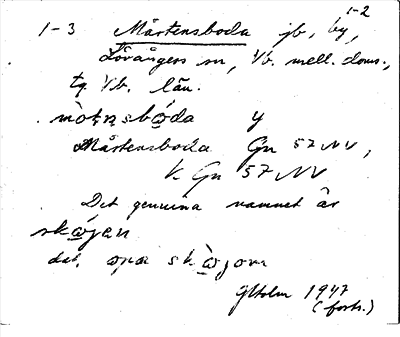 1-2
1-3 Mårtensboda jb, by,
Lövångers sn, Vb. mell. doms.,
tg. Vb. län.
Mårtensboda Gn 57 NV,
K Gn 57 NV
Det genuina namnet är
dat.
JHolm 1947
(forts.)